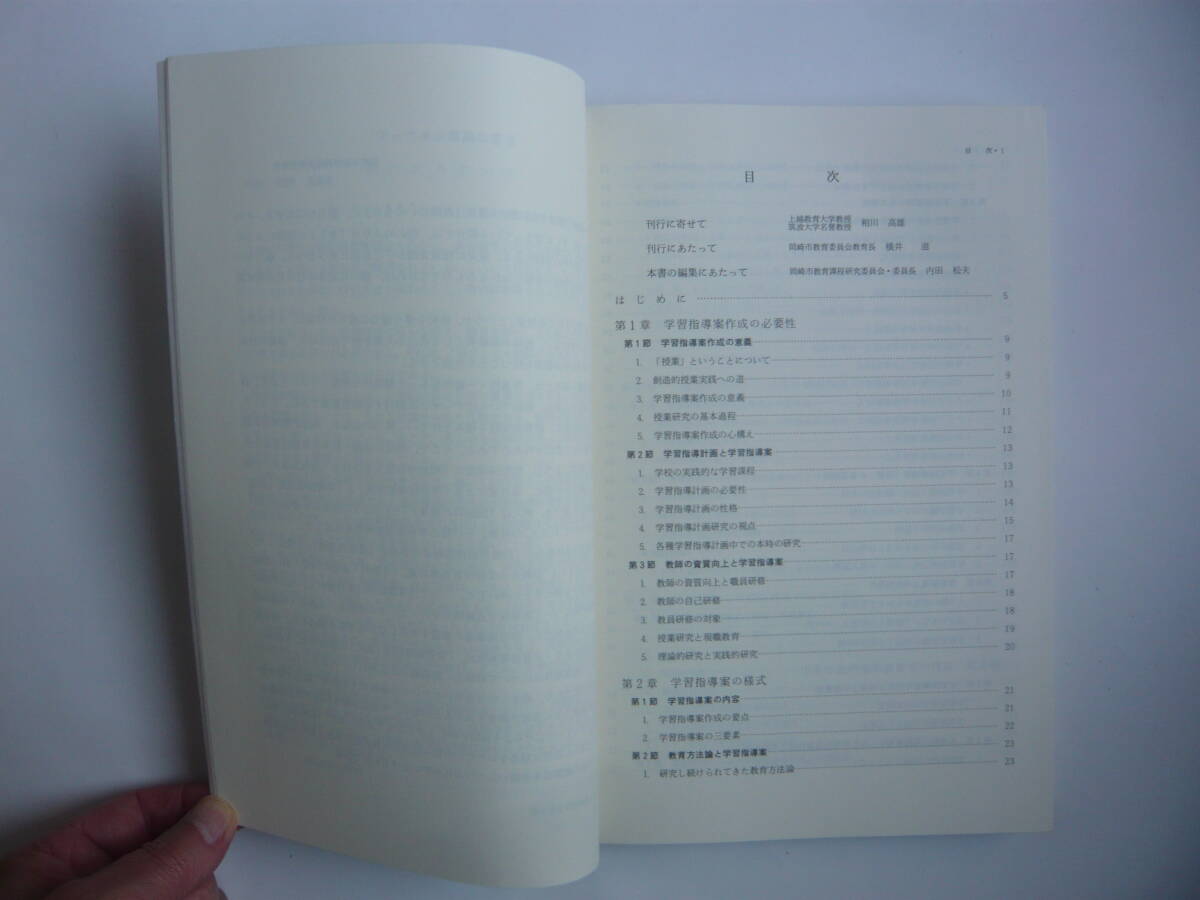 目　次・1
目　　次
刊行に寄せて　上越教育大学教授 筑波大学名誉教授　相川　高雄
刊行にあたって　岡崎市教育委員会教育長　横井　滋
本書の編集にあたって　岡崎市教育課程研究委員会・委員長　内田　松夫
はじめに 5
第1章　学習指導案作成の必要性
第1節　学習指導案作成の意義 9
1. 「授業」ということについて 9
2. 創造的授業実践への道 9
3. 学習指導案作成の意義 10
4. 授業研究の基本過程 11
5. 学習指導案作成の心構え 12
第2節　学習指導計画と学習指導案 13
1. 学校の実践的な学習課程 13
2. 学習指導計画の必要性 13
3. 学習指導計画の性格 14
4. 学習指導計画研究の視点 15
5. 各種学習指導計画中での本時の研究 17
第3節　教師の資質向上と学習指導案 17
1. 教師の資質向上と職員研修 17
2. 教師の自己研修 18
3. 教員研修の対象 18
4. 授業研究と現職教育 19
5. 理論的研究と実践的研究 20
第2章　学習指導案の様式
第1節　学習指導案の内容 21
1. 学習指導案作成の要点 21
2. 学習指導案の三要素 22
第2節　教育方法論と学習指導案 23
1. 研究し続けられてきた教育方法論 23